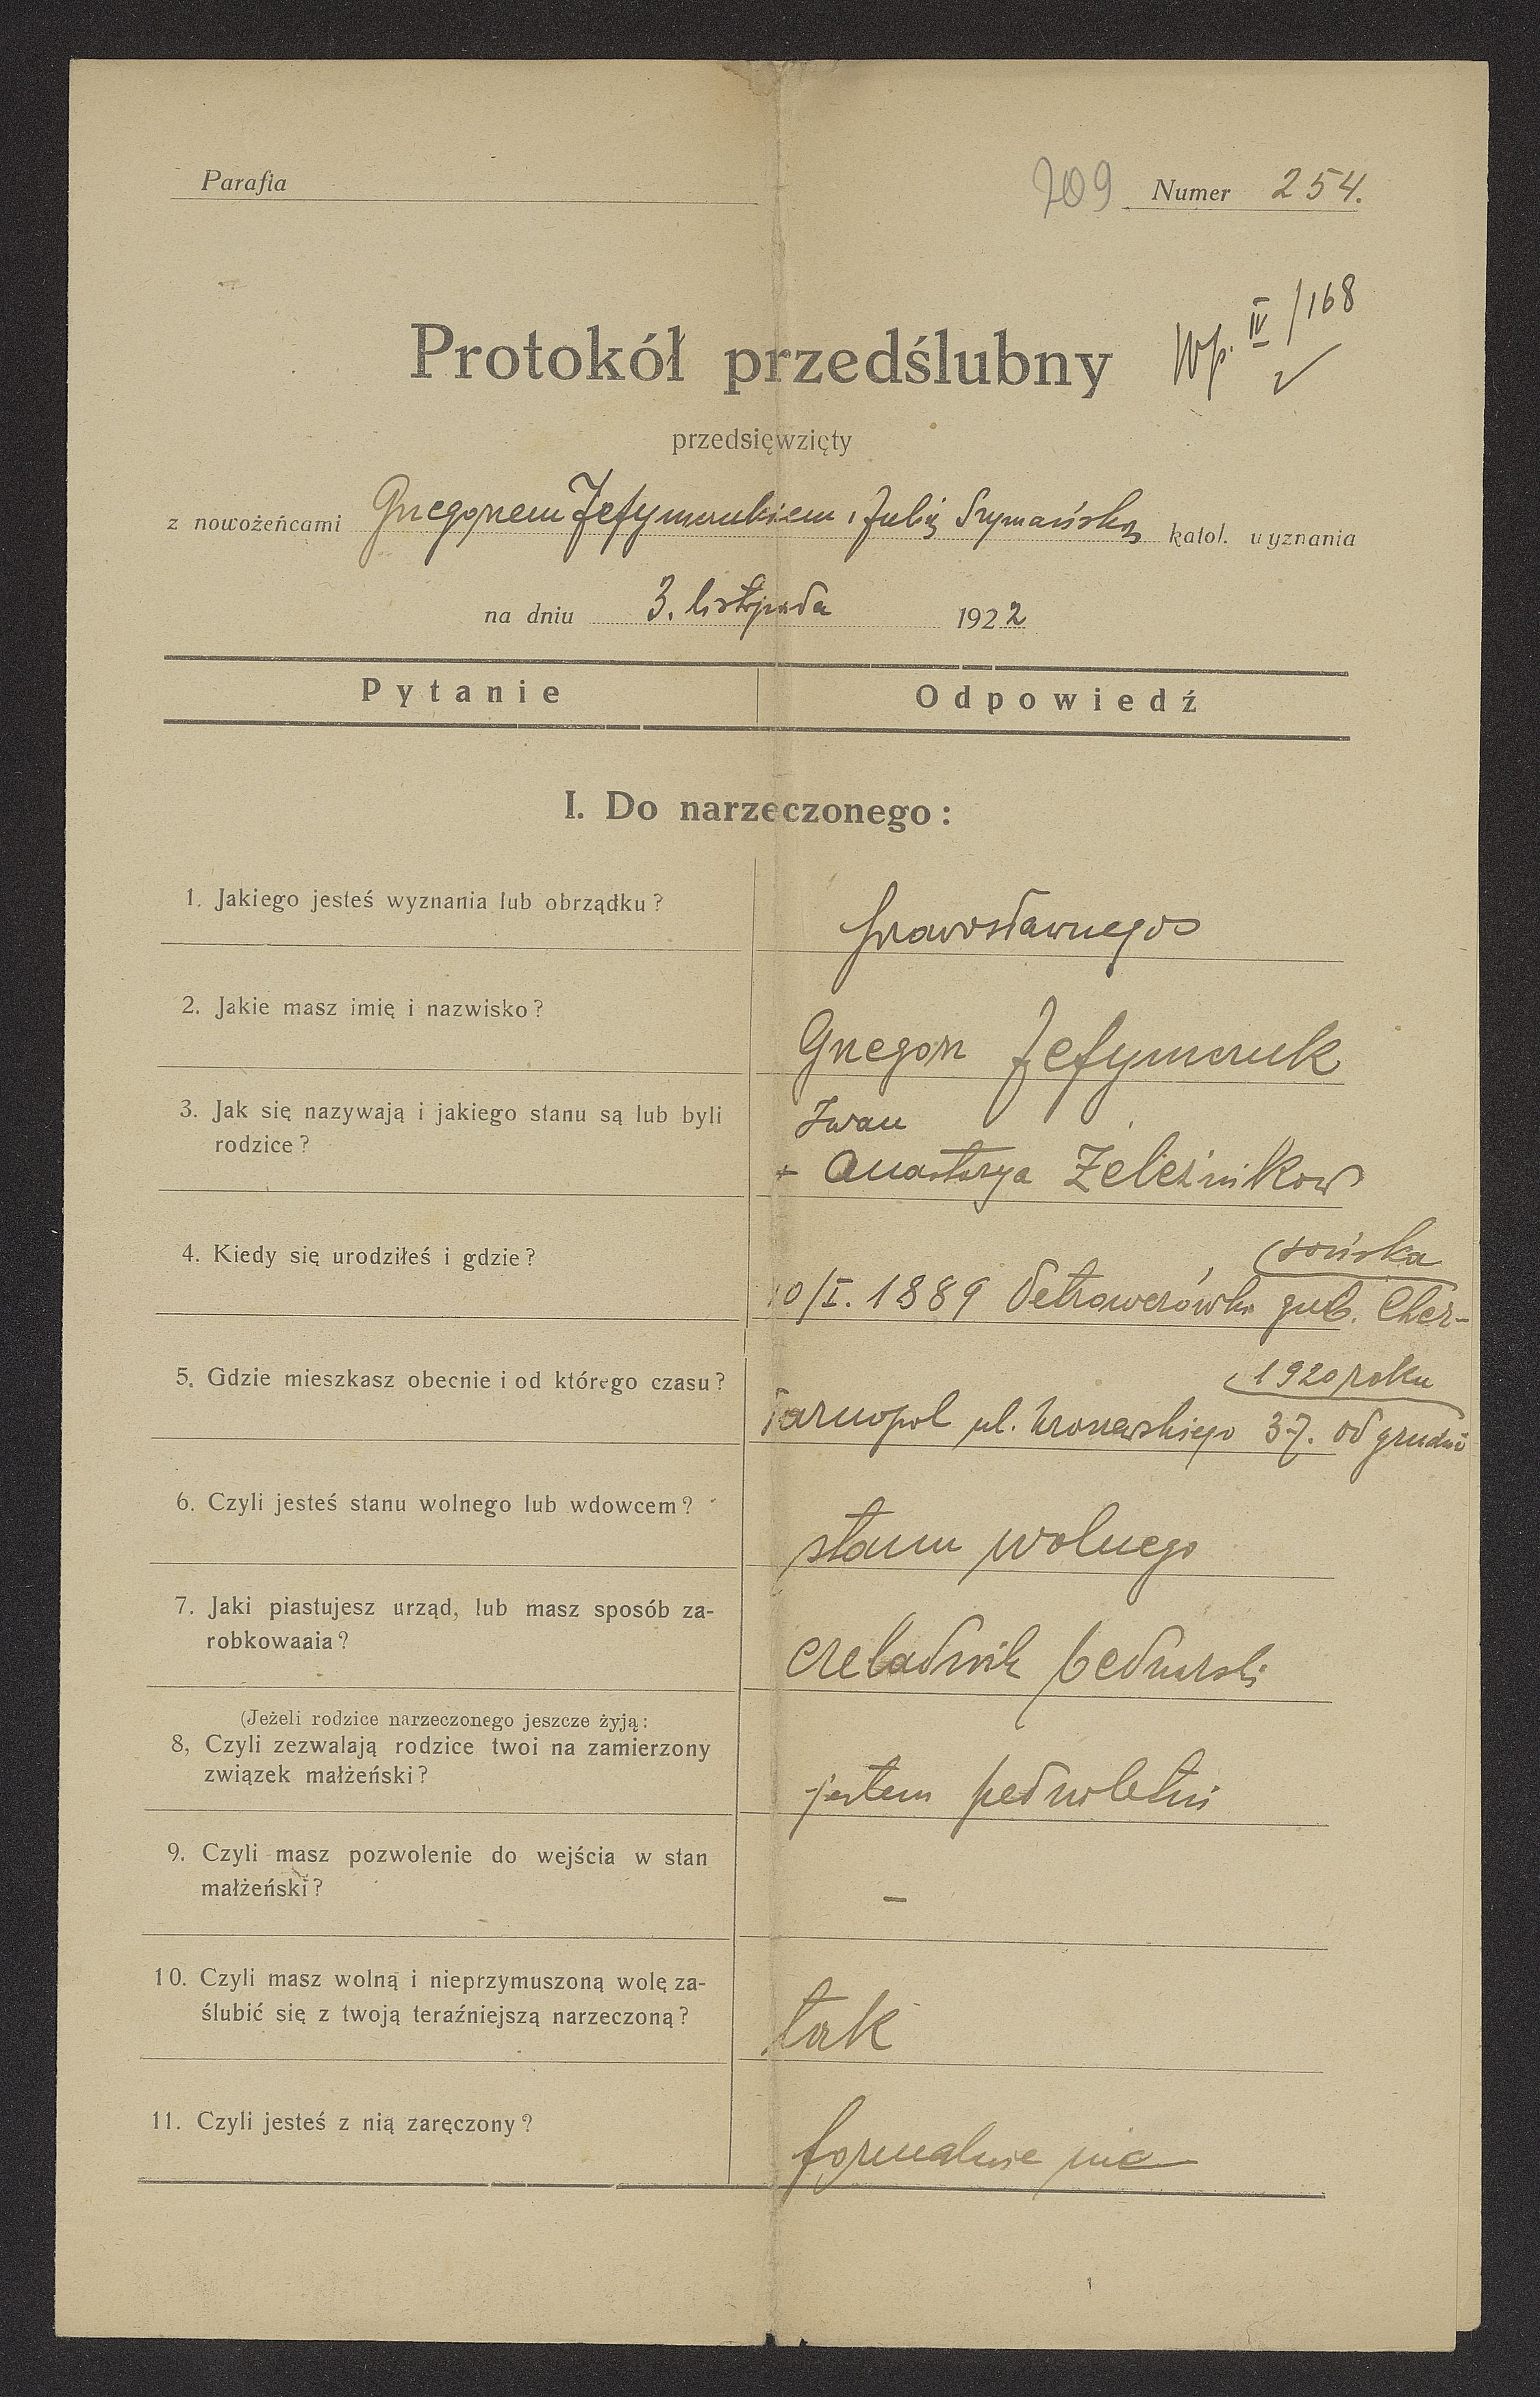 Parafia
209 Numer 254.
Wp. IV/168
Protokół przedślubny
przedsięwzięty
z nowożeńcami Grzegorzem Jefymczukiem i Julią Szymańską katol. wyznania
na dniu 3. listopada 1922
Pytanie Odpowiedź
I. Do narzeczonego:
1. Jakiego jesteś wyznania lub obrządku?
prawosławnego
2. Jakie masz imię i nazwisko?
Grzegorz Jefymczuk
3. Jak się nazywają i jakiego stanu są lub byli
rodzice?
Iwan
+ Anastazya Zeleźnikow
4. Kiedy się urodziłeś i gdzie?
10/I. 1889 Petrowerówka gub. Cher-
sońska
5. Gdzie mieszkasz obecnie i od którego czasu?
Tarnopol ul. 37. od grudnia
1920 roku
6. Czyli jesteś stanu wolnego lub wdowcem?
stanu wolnego
7. Jaki piastujesz urząd, lub masz sposób za-
robkowaaia?
czeladnik bednarski
(Jeżeli rodzice narzeczonego jeszcze żyją:
8, Czyli zezwalają rodzice twoi na zamierzony
związek małżeński?
jestem pełnoletni
9. Czyli masz pozwolenie do wejścia w stan
małżeński?
–
10. Czyli masz wolną i nieprzymuszoną wolę za-
ślubić się z twoją teraźniejszą narzeczoną?
tak
11. Czyli jesteś z nią zaręczony?
formalnie nie